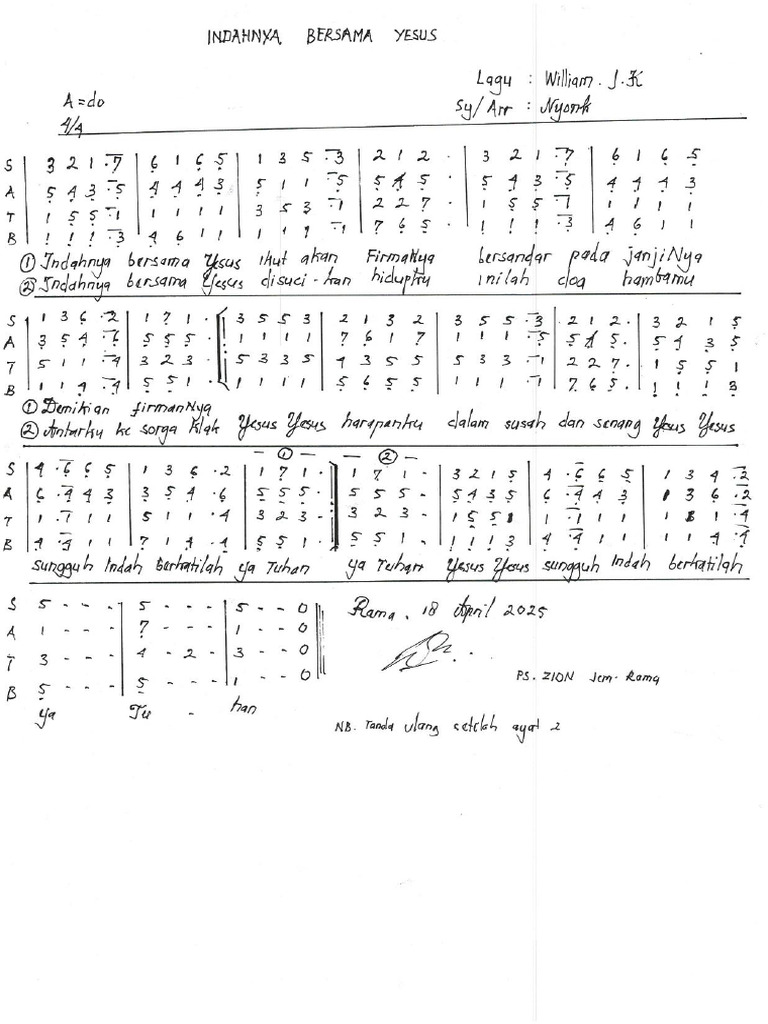 INDAHNYA BERSAMA YESUS
Lagu : William. J.K
A = do
Sy/Arr : Nyomk
4/4
S | 3 2 1 .7 | 6 1 6 5 | 1 3 5 .3 | 2 1 2 . | 3 2 1 .7 | 6 1 6 5
A | 5 4 3 .5 | 4 4 4 3 | 5 1 1 .5 | 5 4 5 . | 5 4 3 .5 | 4 4 4 3
T | 1 5 5 .1 | 1 1 1 1 | 3 5 3 .1 | 2 2 7 . | 1 5 5 .1 | 1 1 1 1
B | 1 1 1 .3 | 4 6 1 1 | 1 1 1 .1 | 7 6 5 . | 1 1 1 .3 | 4 6 1 1
① Indahnya bersama Yesus ikut akan FirmaNya bersandar pada janjiNya
② Indahnya bersama Yesus disuci-kan hidupku inilah doa hambamu
S | 1 3 6 .2 | 1 7 1 . |: 3 5 5 3 | 2 1 3 2 | 3 5 5 .3 | 2 1 2 . | 3 2 1 5
A | 3 5 4 .6 | 5 5 5 . | 1 1 1 1 | 7 6 1 7 | 1 1 1 .5 | 5 4 5 . | 5 4 3 5
T | 5 1 1 .4 | 3 2 3 . | 5 3 3 5 | 4 3 5 5 | 5 3 3 .1 | 2 2 7 . | 1 5 5 1
B | 1 1 4 .4 | 5 5 1 . | 1 1 1 1 | 5 6 5 5 | 1 1 1 .1 | 7 6 5 . | 1 1 1 3
① Demikian firmanNya
② Antarku ke sorga klak Yesus Yesus harapanku dalam susah dan senang Yesus Yesus
– ① – – ② –
S | 4 .6 6 5 | 1 3 6 .2 | 1 7 1 . :| 1 7 1 . | 3 2 1 5 | 4 .6 6 5 | 1 3 4 .2
A | 6 .4 4 3 | 3 5 4 .6 | 5 5 5 . | 5 5 5 . | 5 4 3 5 | 6 .4 4 3 | 1 3 6 .2
T | 1 .1 1 1 | 5 1 1 .4 | 3 2 3 . | 3 2 3 . | 1 5 5 1 | 1 .1 1 1 | 1 1 1 .4
B | 4 .4 1 1 | 7 1 4 .4 | 5 5 1 . | 5 5 1 . | 1 1 1 3 | 4 .4 1 1 | 1 1 4 .4
sungguh Indah berkatilah ya Tuhan ya Tuhan Yesus Yesus sungguh Indah berkatilah
S 5 - - - | 5 - - - | 5 - - 0
A 1 - - - | 7 - - - | 1 - - 0
T 3 - - - | 4 - 2 - | 3 - - 0
B 5 - - - | 5 - - - | 1 - - 0
ya Tu - han
Rama, 18 April 2025
PS. ZION Jem-Rama
NB. Tanda ulang setelah ayat 2